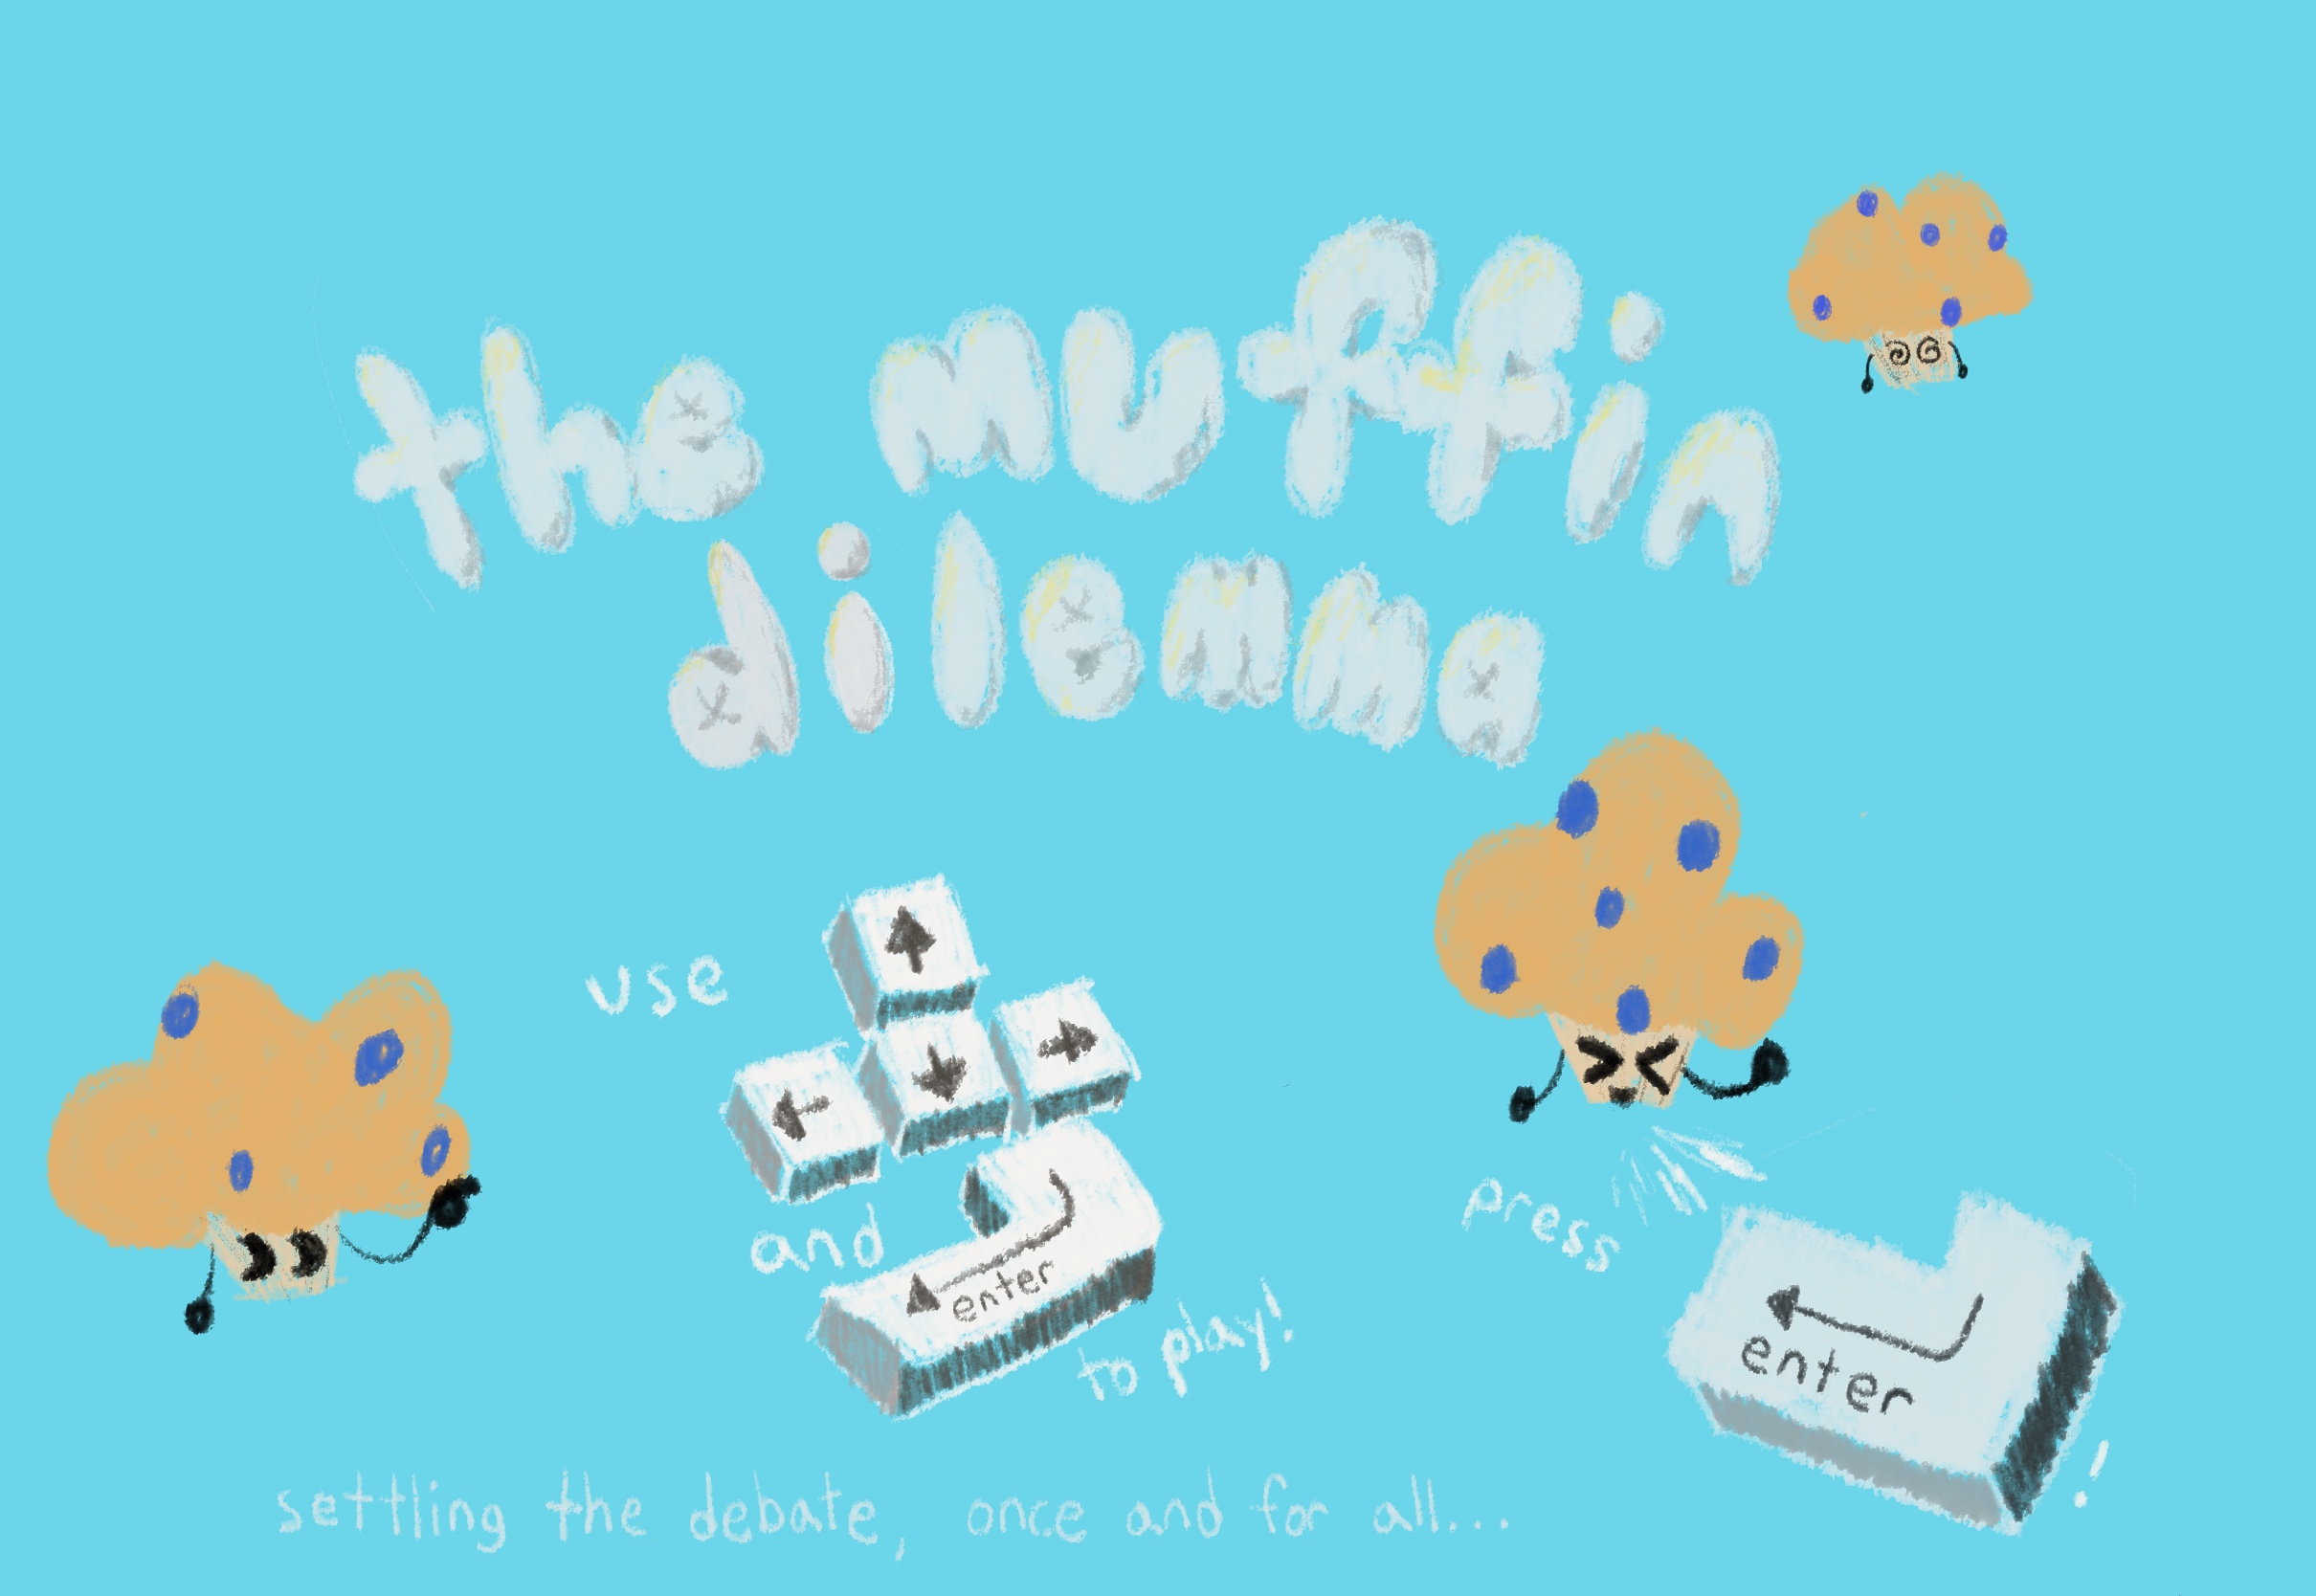 the muffin
dilemma
use
and
enter
to play!
press
enter
!
settling the debate, once and for all...